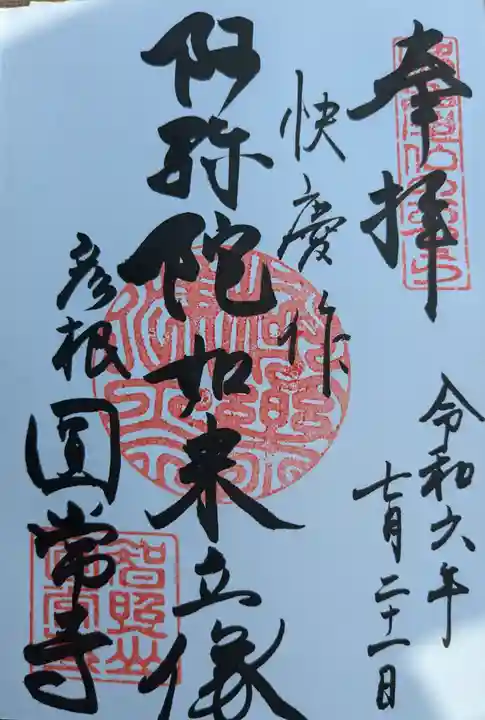 奉拝
令和六年
七月二十一日
快慶作
阿弥陀如来立像
彦根
圓常寺
智照山